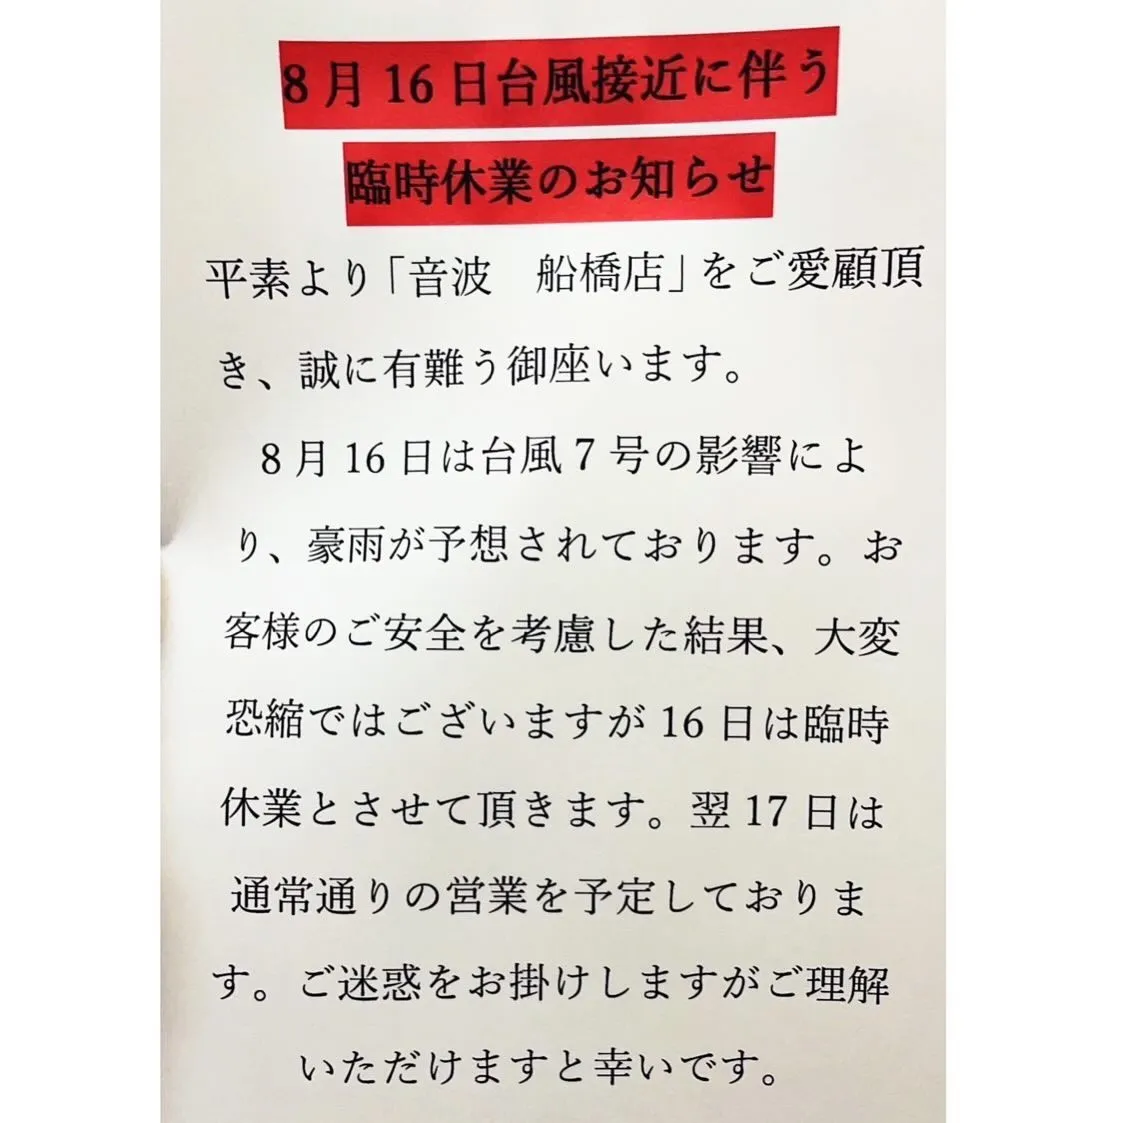 8月16日台風接近に伴う
臨時休業のお知らせ
平素より「音波　船橋店」をご愛顧頂
き、誠に有難う御座います。
8月16日は台風7号の影響によ
り、豪雨が予想されております。お
客様のご安全を考慮した結果、大変
恐縮ではございますが16日は臨時
休業とさせて頂きます。翌17日は
通常通りの営業を予定しておりま
す。ご迷惑をお掛けしますがご理解
いただけますと幸いです。